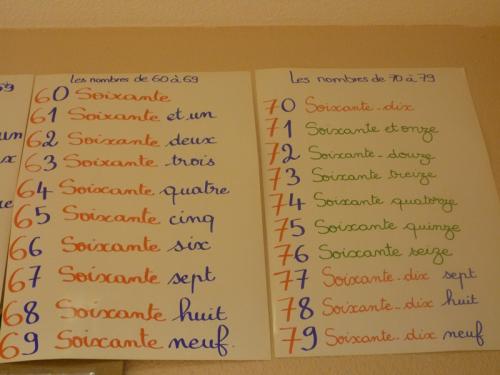 Les nombres de 60 à 69
60 Soixante
61 Soixante et un
62 Soixante deux
63 Soixante trois
64 Soixante quatre
65 Soixante cinq
66 Soixante six
67 Soixante sept
68 Soixante huit
69 Soixante neuf
Les nombres de 70 à 79
70 Soixante-dix
71 Soixante et onze
72 Soixante douze
73 Soixante treize
74 Soixante quatorze
75 Soixante quinze
76 Soixante seize
77 Soixante-dix sept
78 Soixante-dix huit
79 Soixante-dix neuf